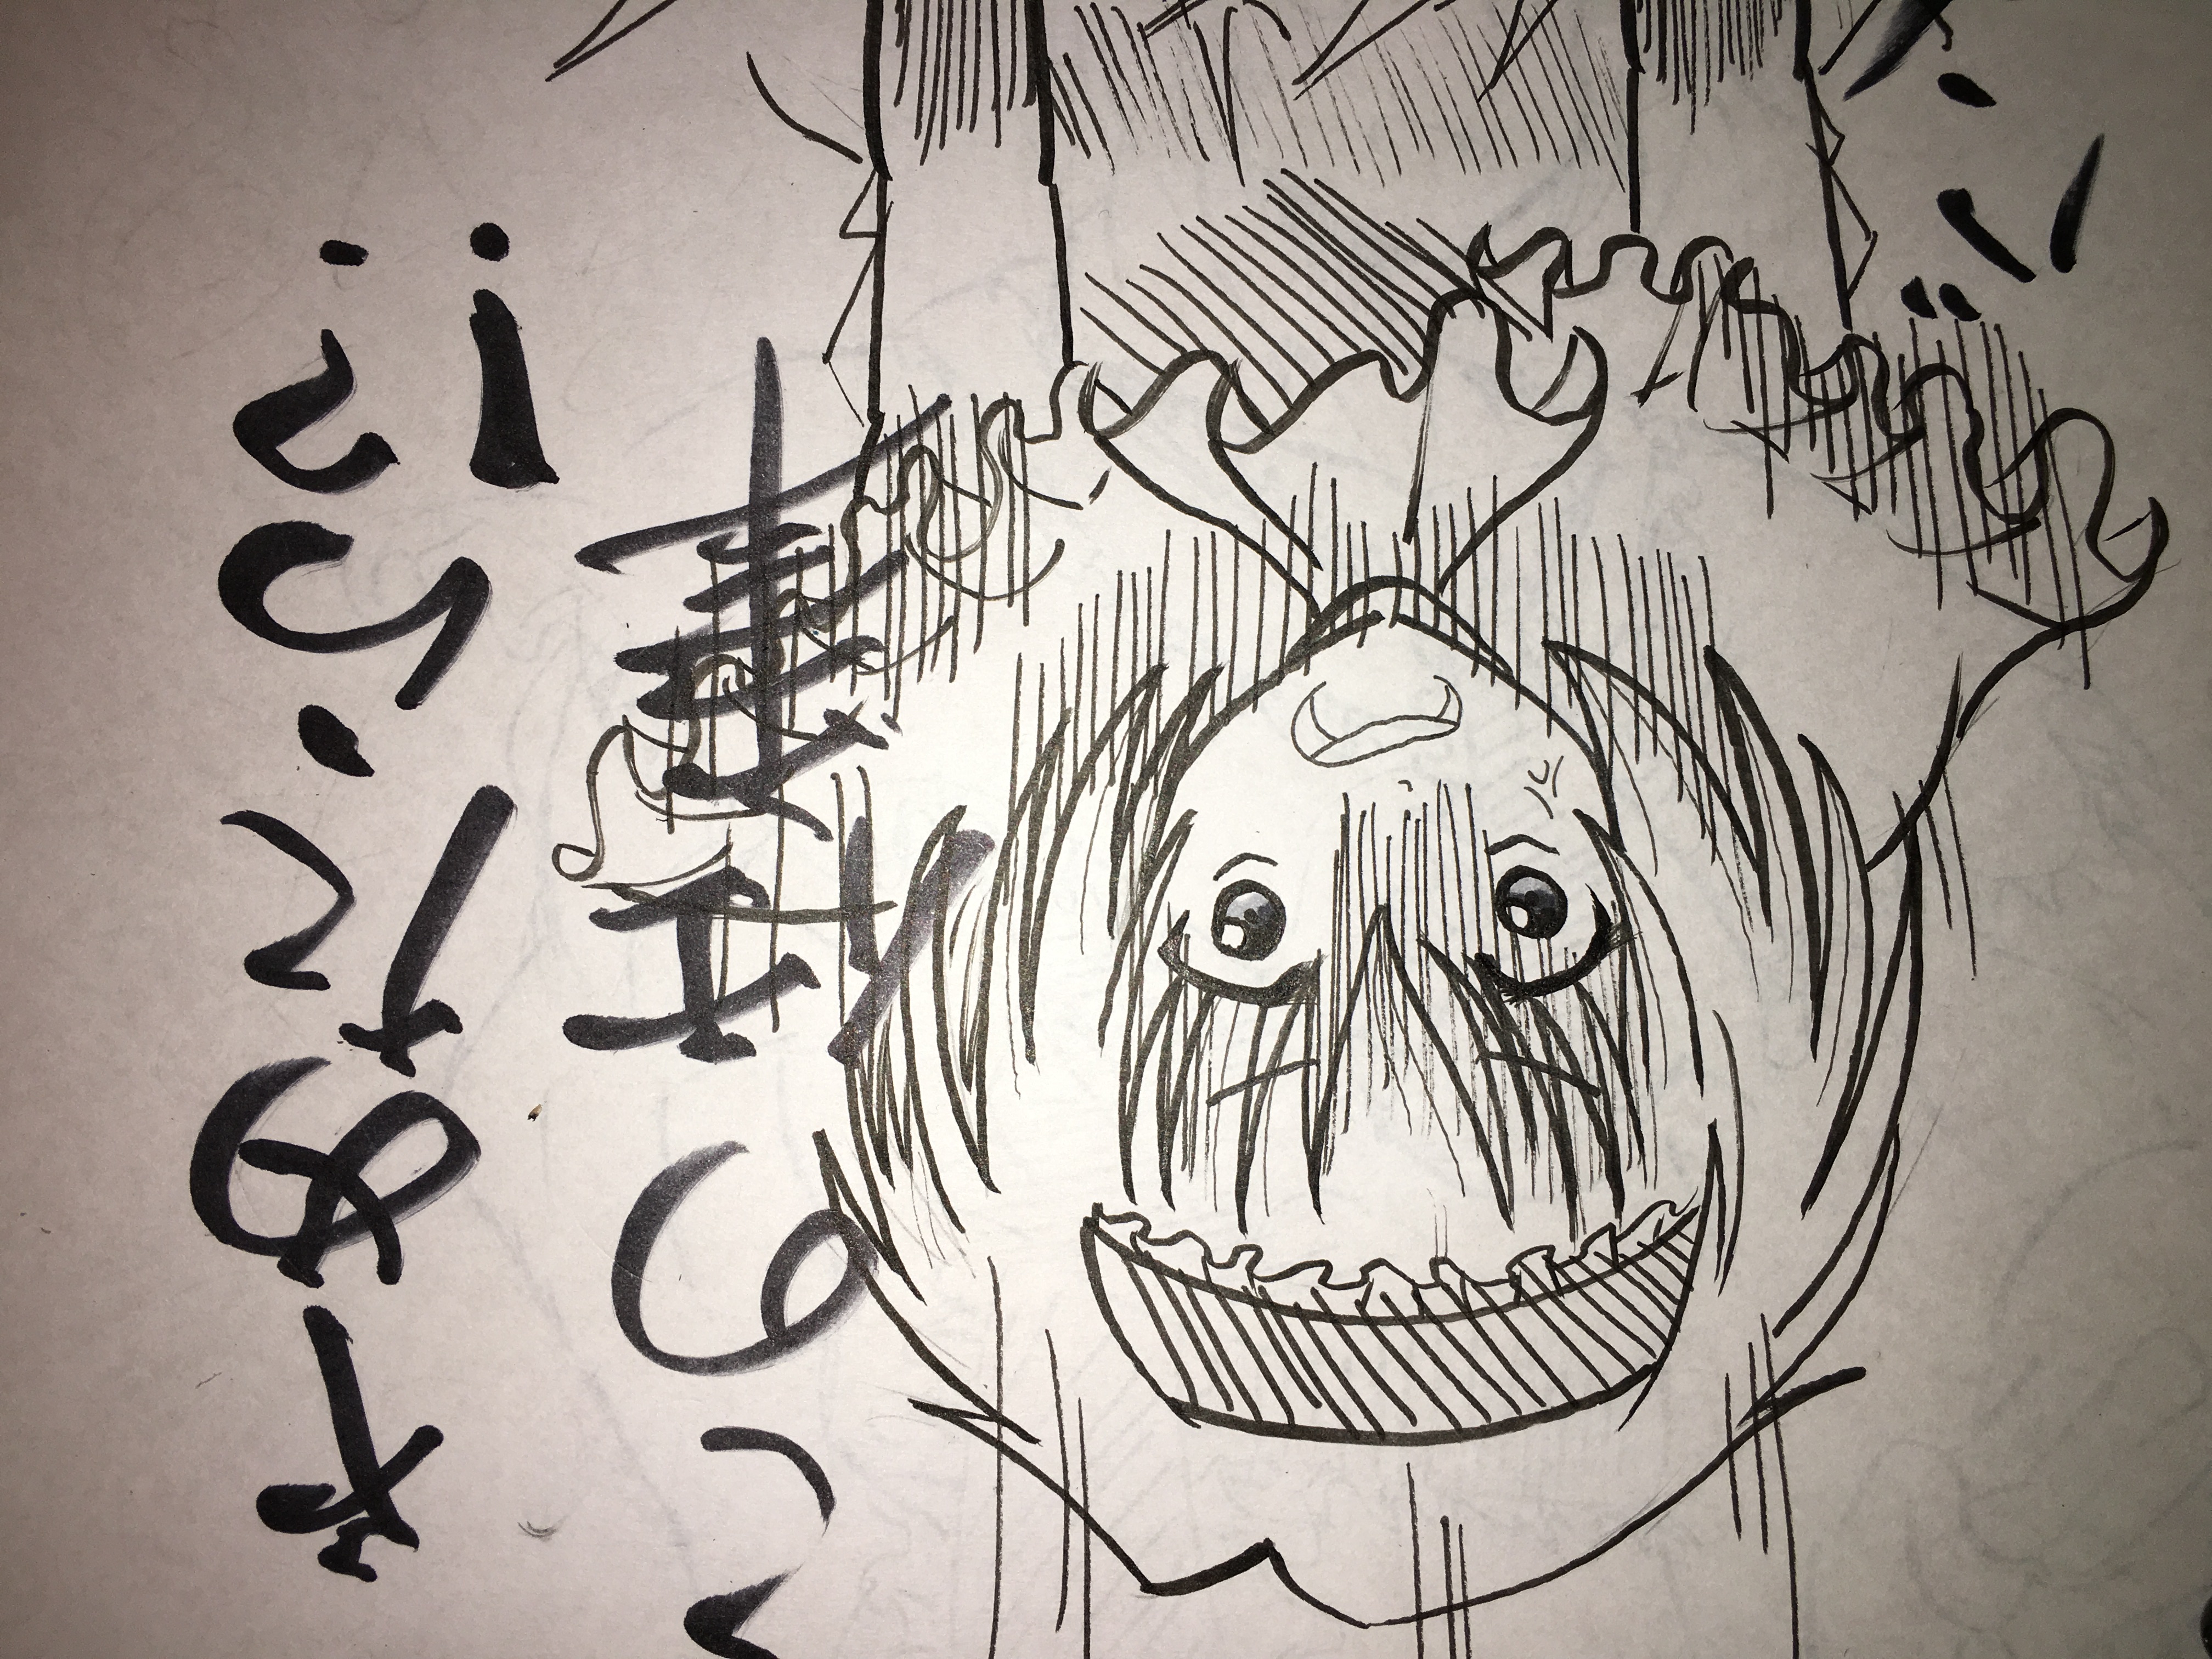 やめたら?!
この仕事
バン